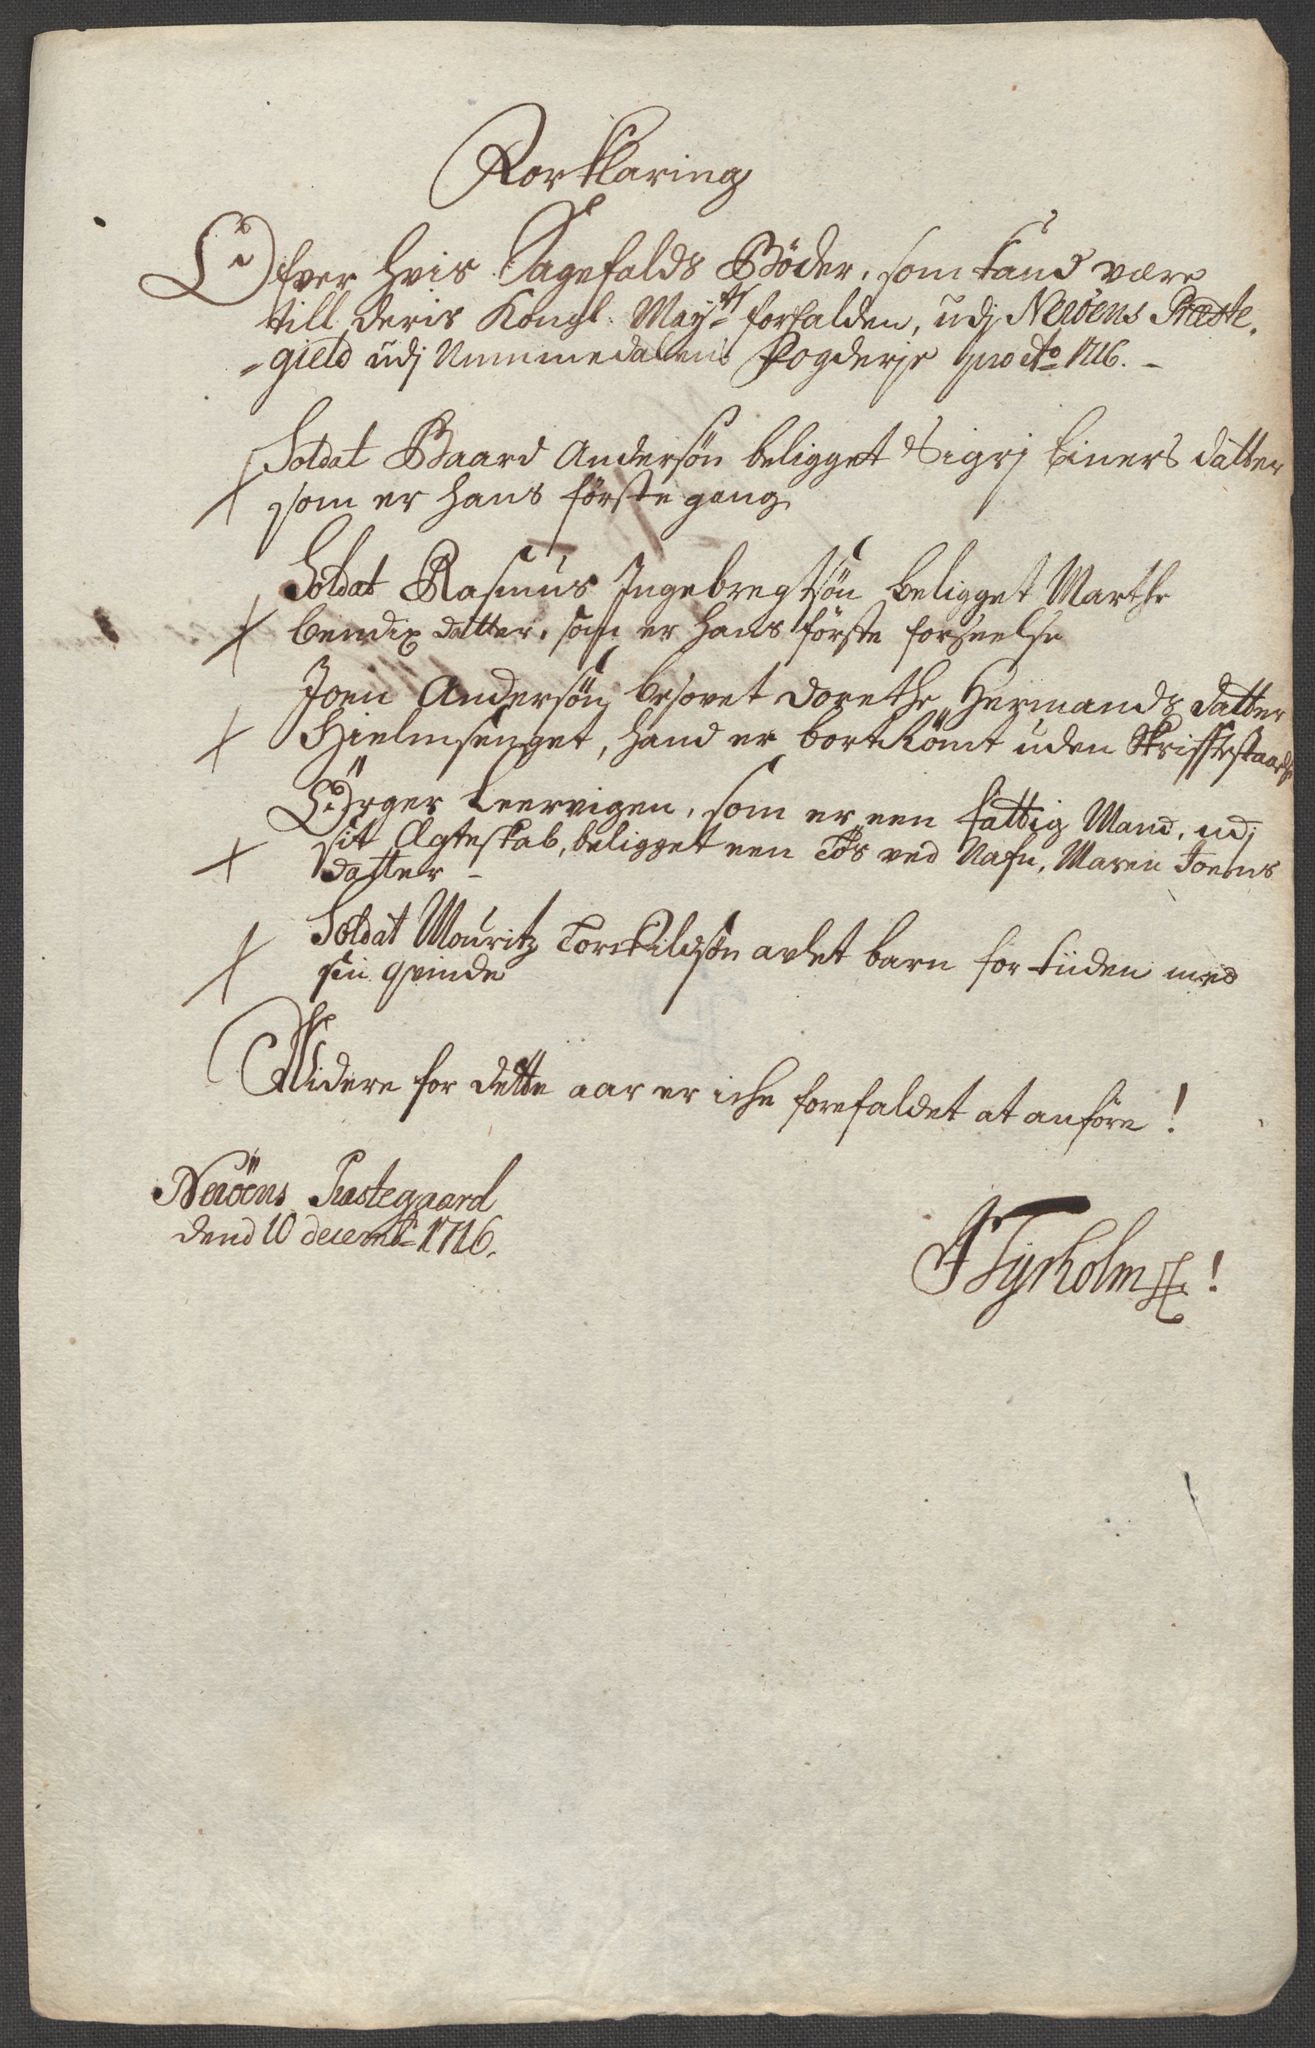 Forklaring
Ofver hvis Sagefalds Bøder, som kand være
till deris Kongl: May:ts forfalden, udj Nerøens Præste-
-gield udj Nummedalens Fogderje pro Ao 1716. -
Soldat Baard Andersøn beligget Sigrj Einers datter
som er hans første gang.
Soldat Rasmus Ingebregtsøn beligget Marthe
bendix datter, som er hans første forseelse
Joen Andersøn besovet Dorethe Hermands datter
Hielmsenget, hand er bortkömt uden Skrifftestaard
Ørger Leervigen, som er een fattig Mand, udj
sit Ægteskab, beligget een Tøs ved Nafn, Maren Joens
datter -
Soldat Mouritz Torckildsøn avlet barn for tiiden med
sin qvinde
Widere for dette aar er iche forefaldet at anföre!
Nerøens Præstegaard
dend 10 decemb: 1716.
Tyrholm!